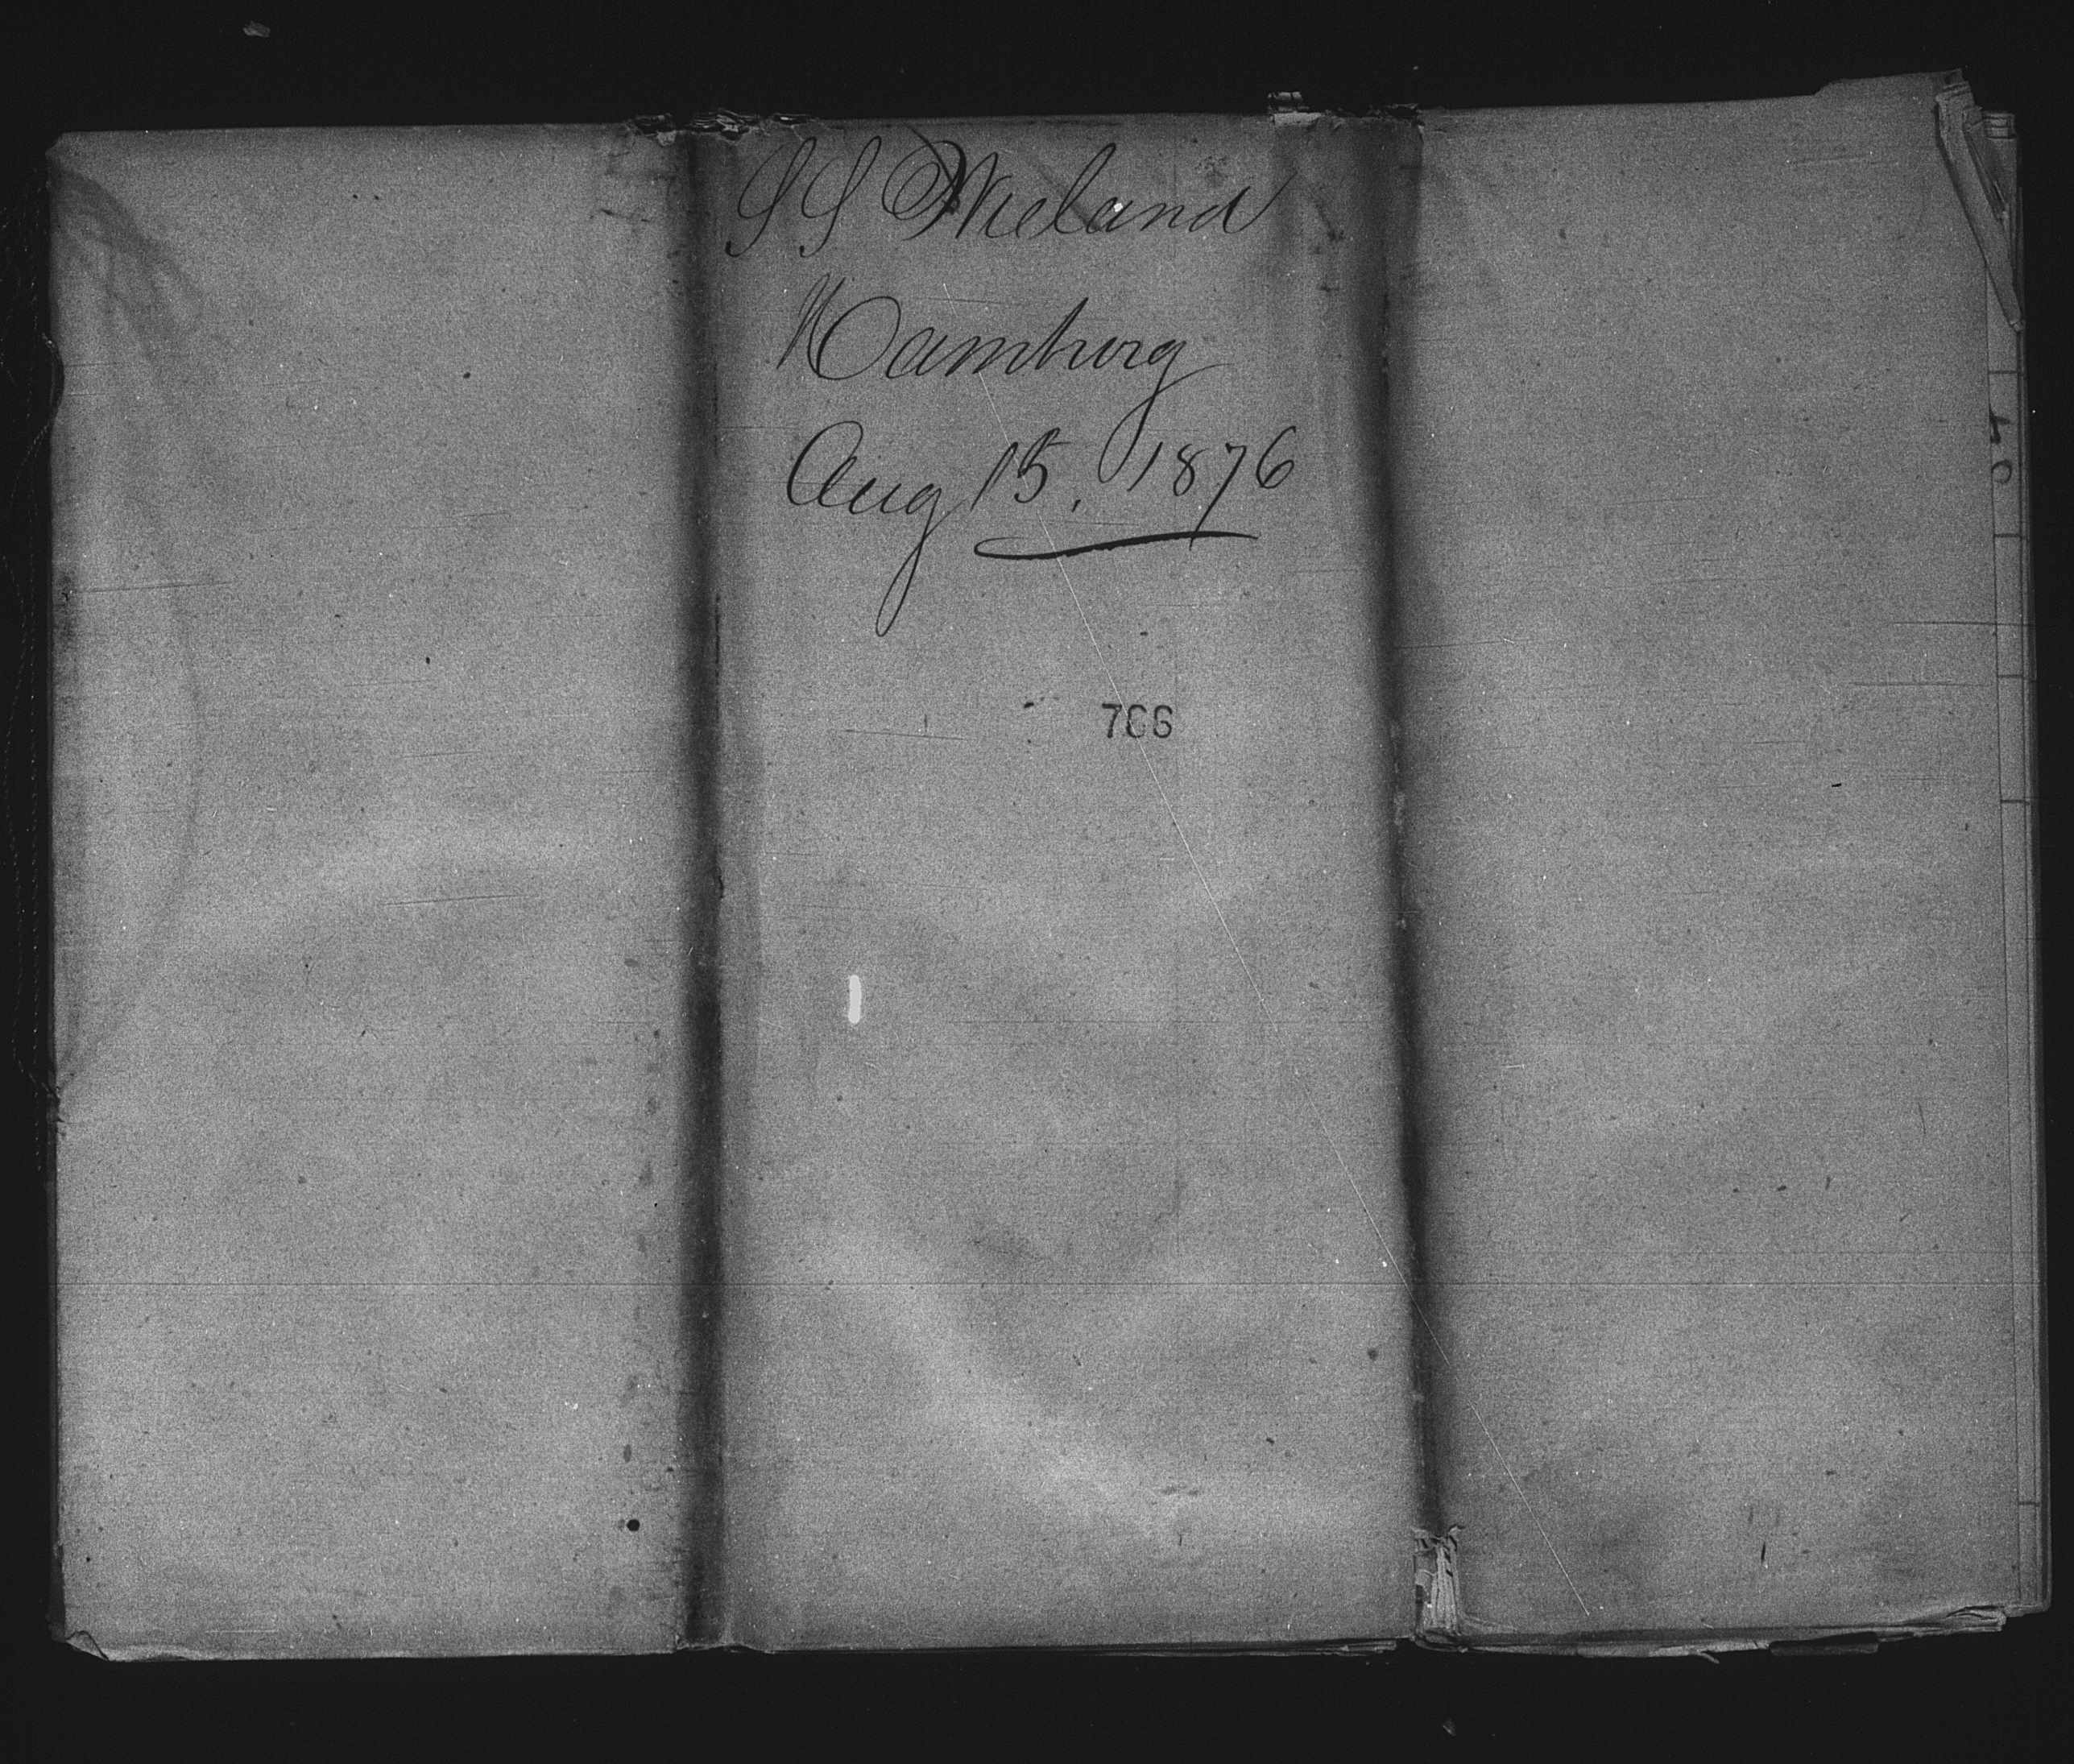 SS Wieland
Hamburg
Aug 15, 1876
766